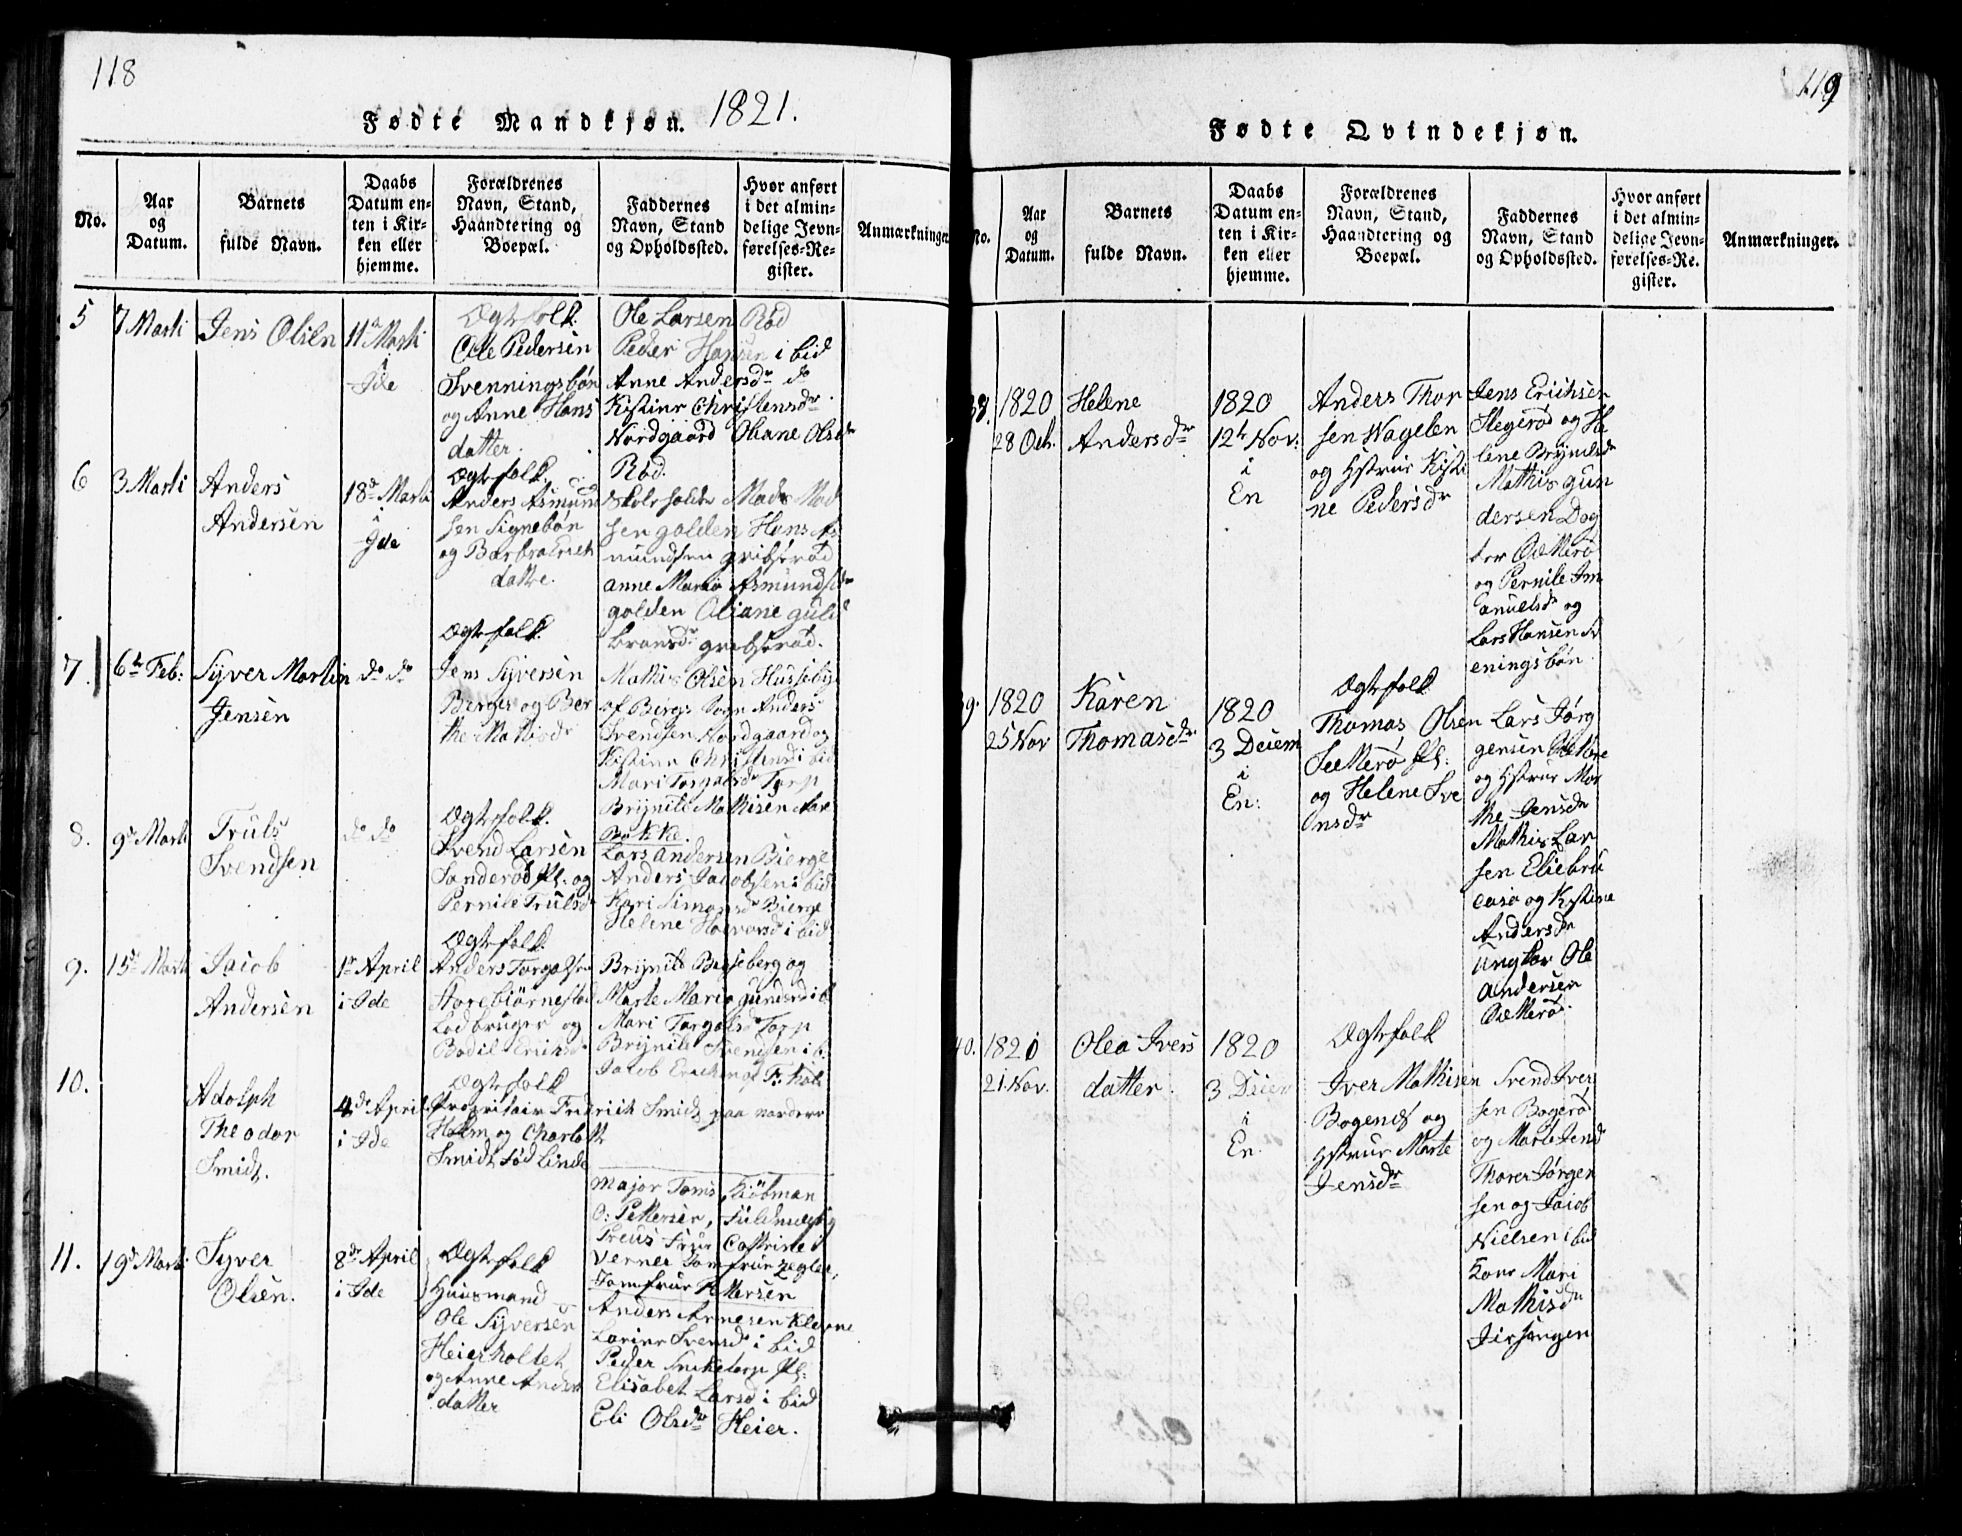 118
Fødte Mandkjøn. 1821.
No.
Aar
og
Datum.
Barnets
fulde Navn.
Daabs
Datum en-
ten i Kir-
ken eller
hjemme.
Forældrenes
Navn, Stand,
Haandtering og
Boepæl.
Faddernes
Navn, Stand
og Opholdssted.
Hvor anført
i det almin-
delige Jevn-
førelses-Re-
gister.
Anmærkninger
5
7 Marti
Jens Olsen
11 Marti
i
Ide
Ægtefolk.
Ole Pedersen
Svenningsbøn
og Anne Hans
datter.
Ole Larsen Rød
Peder Hansen i bid
Anne Andersdr do
Kistine Christensdr
Nordgaard Oliane Olsdr
Rød.
6
3 Marti
Anders
Andersen
18de Marti
i
Ide
Ægtefolk.
Anders Asmund
sen Signebøn
og Barbra Erich
datte.
Mads Mad
sen golden Hans As
mundsen gribsrød
anne Maria Asmundsdr
golden Oliane guld
bransdr gribsrød.
7.
6te Feb:
Syver Martin
Jensen
do do
Ægtefolk
Jens Syversen
Berger og Ber
the Mathisdr
Mathis Olsen
af Bergs Sogn Anders
Svendsen Nordgaard og
Kistine Christensd i bid
Mari Torgalsdr Torp
Brynild Mathisen
Bakke.
8.
9de Marti
Truls
Svendsen
do do
Ægtefolk.
Svend Larsen
Sanderød pl. og
Pernile Trulsdr
Lars Andersen Bierge
Anders Jacobsen i bid
Kari Simonsdr Bierge
Helene Halvorsd i bid
9.
15de Marti
Jacob
Andersen
1r April
i Ide
Ægtefolk.
Anders Torgalsen
Storebiørnestad
Lodbruger og
Bodil Ericksd
Brynild og
Marte Maria
Mari Torgalsdr Torp
Brynild Svendsen i b.
Jacob
10.
Adolph
Theodor
Smidt.
4de April
i Ide
Ægtefolk
Proprietair Fredrich Smidt paa nordere
Holm og Charlotte
Smidt fød Linde
Major Toms, Kiøbman
O: Pettersen, Fuldmægtig
Preus Frue Cathrine
Verner Jomfrue Zegler,
Jomfrue Pettersen
11.
19de Marti
Syver
Olsen.
8de April
i Ide
Ægtefolk
Huusmand
Ole Syversen
Heierholtet
og Anne Anders
datter
Anders Arnesen Klevne
Larine Svensdr i bid
Peder Sneketorp pl:
Elisabet Larsd i bid
Eli Olsdr Heier.
119
Fødte Qvindekjøn.
No.
Aar
og
Datum.
Barnets
fulde Navn.
Daabs
Datum en-
ten i Kir-
ken eller
hjemme.
Forældrenes
Navn, Stand,
Haandtering og
Boepæl.
Faddernes
Navn, Stand
og Opholdssted.
Hvor anført
i det almin-
delige Jevn-
førelses-Re-
gister.
Anmærkninger.
38.
1820
28 Octr.
Helene
Andersdr
1820
12te Nov:
i
En
Anders Thor
sen Wagelen
og Hstrue Kisti
ne Pedersdr
Jens Erichsen
Hegerød og He
lene Brynildsdr
Mathis gun
dersen Dog
ter
og Pernile Im
anuelsdr og
Lars Hansen Sv
eningsbøn.
39.
1820
25 Nov
Karen
Thomasdr
1820
3 Deiem
i
En:
Ægtefolk
Thomas Olsen
pl:
og Helene Sve
nsdr
Lars Jørg
ensen
og Hstrue Mar
the Jensdr
Mathis Lar
sen Eliebru
og Kistine
Andersdr
Ungkar Ole
Andersen
40.
1820
21. Nov.
Olea Ivers
datter
1820
3 Deier
i
En.
Ægtefolk
Iver Mathisen
Bogerød og
Hstrue Marte
Jensdr
Svend Iver
sen Bogerød
og Marte Jensd
Thorer Jørgen
sen og Jacob
Nielsen i bid
Kone Mari
Mathisdr